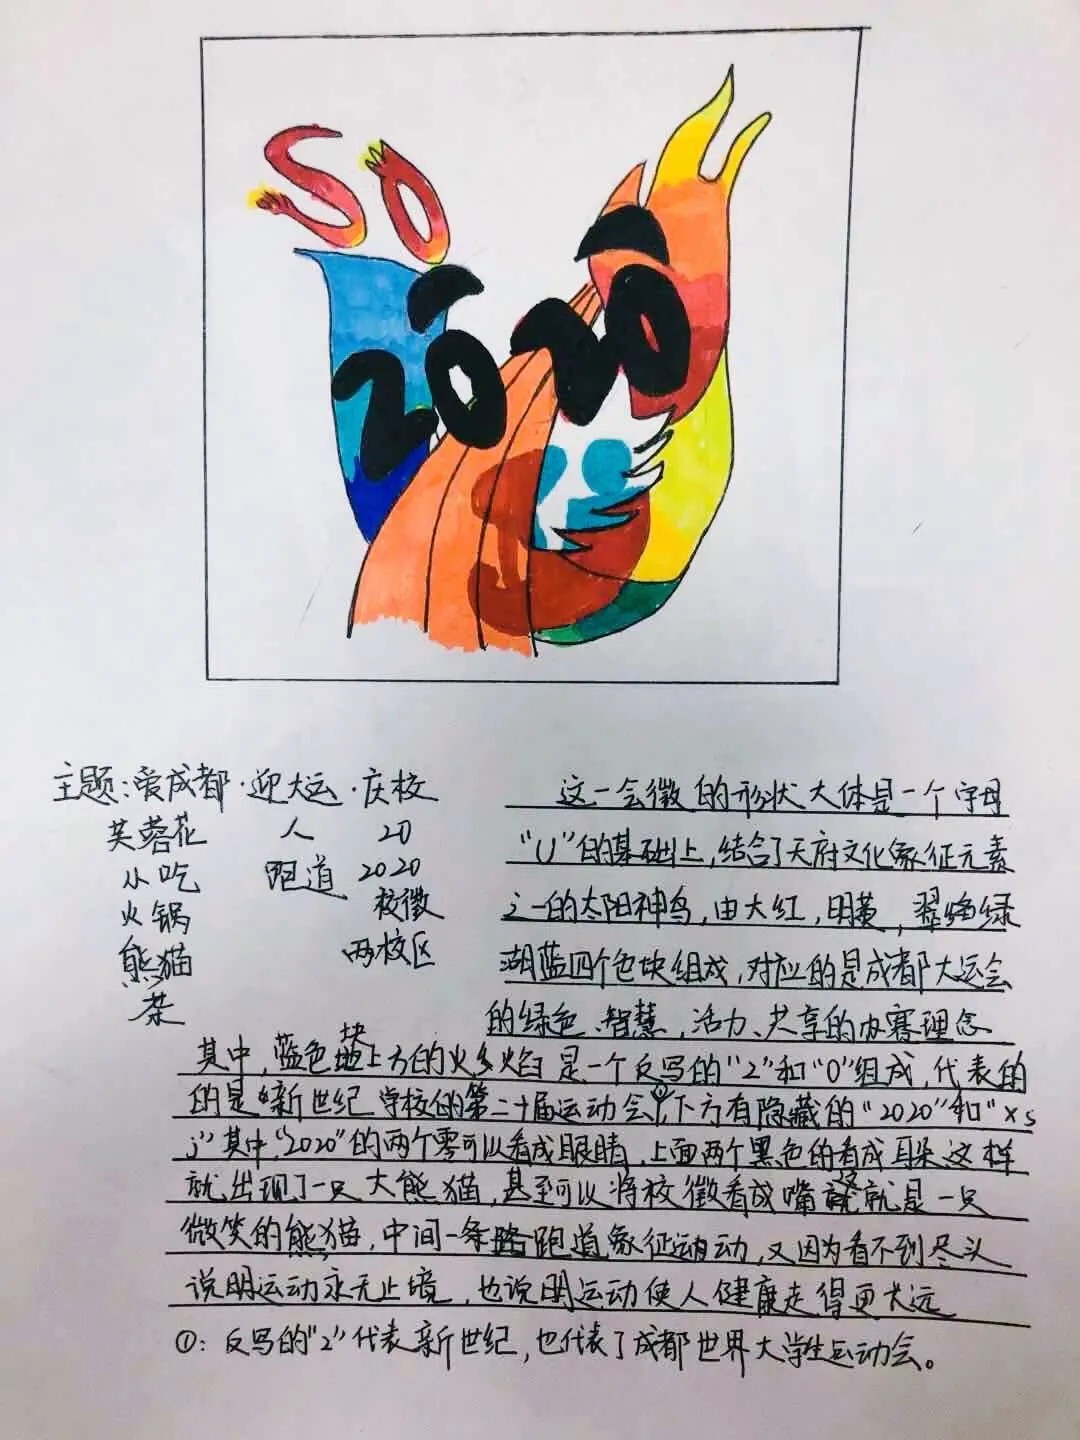 SO
2020
主题:爱成都·迎大运·庆校
芙蓉花 人 20
小吃 跑道 2020
火锅 校徽
熊猫 两校区
茶
这一会徽的形状大体是一个字母
“U”的基础上,结合了天府文化象征元素
之一的太阳神鸟,由大红,明黄,翠绿
湖蓝四个色块组成,对应的是成都大运会
的绿色、智慧,活力、共享的办赛理念
其中,蓝色块上方的火焰是一个反写的“2”和“0”组成,代表的
的是新世纪学校的第二十届运动会①,下方有隐藏的“2020”和“xs
j”其中,“2020”的两个零可以看成眼睛,上面两个黑色的看成耳朵这样
就出现了一只大熊猫,甚至可以将校徽看成嘴 就是一只
微笑的熊猫,中间一条跑道象征运动,又因为看不到尽头
说明运动永无止境,也说明运动使人健康走得更长远
①:反写的“2”代表新世纪,也代表了成都世界大学生运动会。